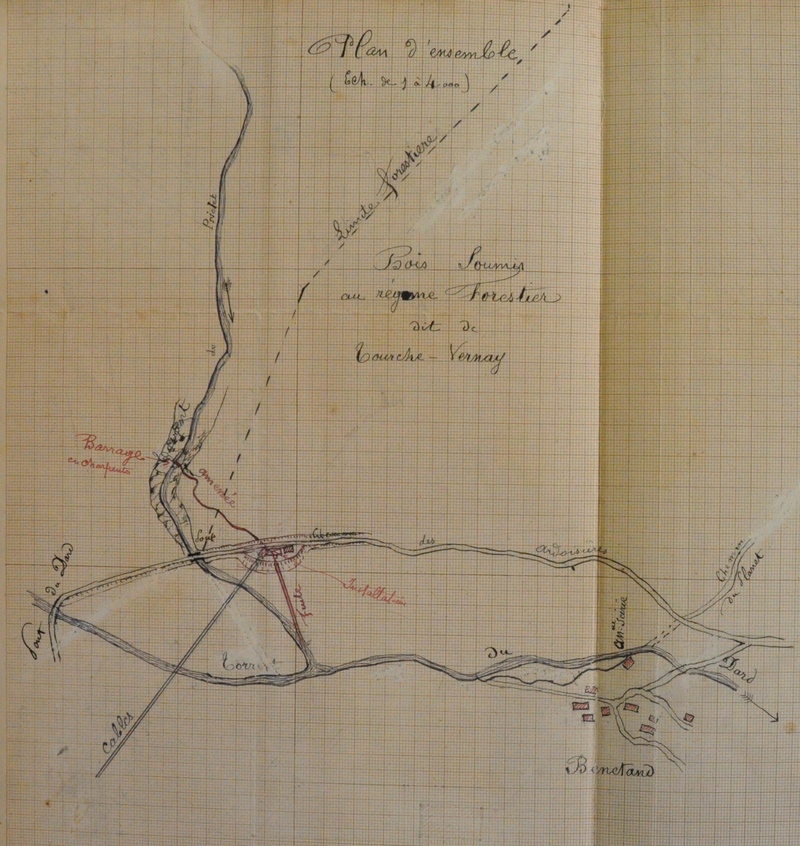 Plan d'ensemble,
(Ech. de 1 à 4.000)
Limite forestière
Bois Soumis
au régime Forestier
dit de
Tourche-Vernay
de
Barrage
en charpente
amenée
Chemin
des
ardoisières
Pont du Dard
Installation
Fuite
Chemin
du Planet
anne Scierie
Torrent
Du
Dard
Cables
Benetand